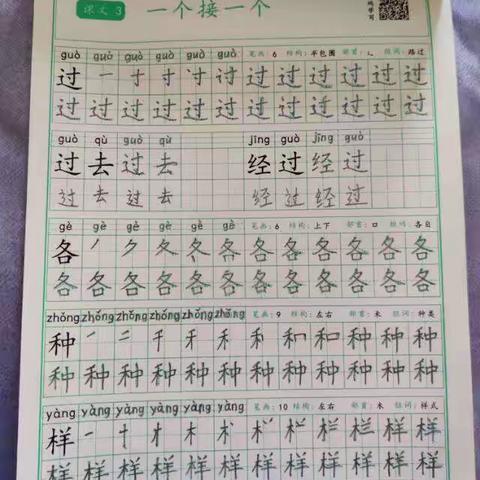 课文 3 一个接一个
guò guò guò guò guò guò 笔画：6 结构：半包围 部首：辶 组词：路过
过 一 寸 寸 寸 过 过 过 过 过 过 过
过 过 过 过 过 过 过 过 过 过 过 过
guò qù guò qù jīng guò jīng guò
过 去 过 去 经 过 经 过
过 去 过 去 经 过 经 过
gè gè gè gè gè gè 笔画：6 结构：上下 部首：口 组词：各自
各 丿 ク 夂 冬 各 各 各 各 各 各 各
各 各 各 各 各 各 各 各 各 各 各 各
zhǒng zhǒng zhǒng zhǒng zhǒng zhǒng 笔画：9 结构：左右 部首：禾 组词：种类
种 一 二 千 禾 禾 和 种 种 种 种
种 种 种 种 种 种 种 种 种 种 种 种
yàng yàng yàng yàng yàng yàng 笔画：10 结构：左右 部首：木 组词：样式
样 一 十 木 木 样 样 样 样
样 样 样 样 样 样 样 样 样 样 样 样